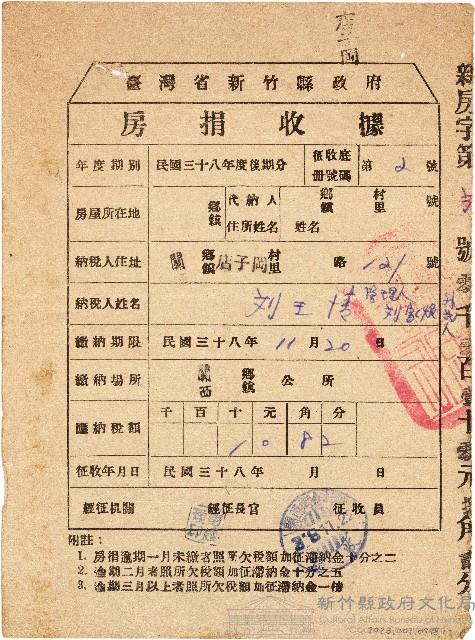 店子岡
臺灣省新竹縣政府
房捐收據
年度期別 民國三十八年度後期分 征收底冊號碼 第 2 號
房屋所在地 鄉鎮 村里 號 代納人住所姓名 姓名
納稅人住址 關 鄉鎮 店子岡 村里 路 121 號
納稅人姓名 刘王情 管理人
繳納期限 民國三十八年 11 月 20 日
繳納場所 關西 鄉鎮 公所
匯納稅額 千 百 十 元 角 分
10 82
征收年月日 民國三十八年 月 日
經征機關 經征長官 征收員
38.11.2
附註：
1. 房捐逾期一月未繳者照所欠稅額加征滯納金十分之二
2. 逾期二月者照所欠稅額加征滯納金十分之五
3. 逾期三月以上者照所欠稅額加征滯納金一倍
新房字第 號零千零百零十零元
新竹縣政府文化局
Cultural Affairs Bureau of Hsinchu